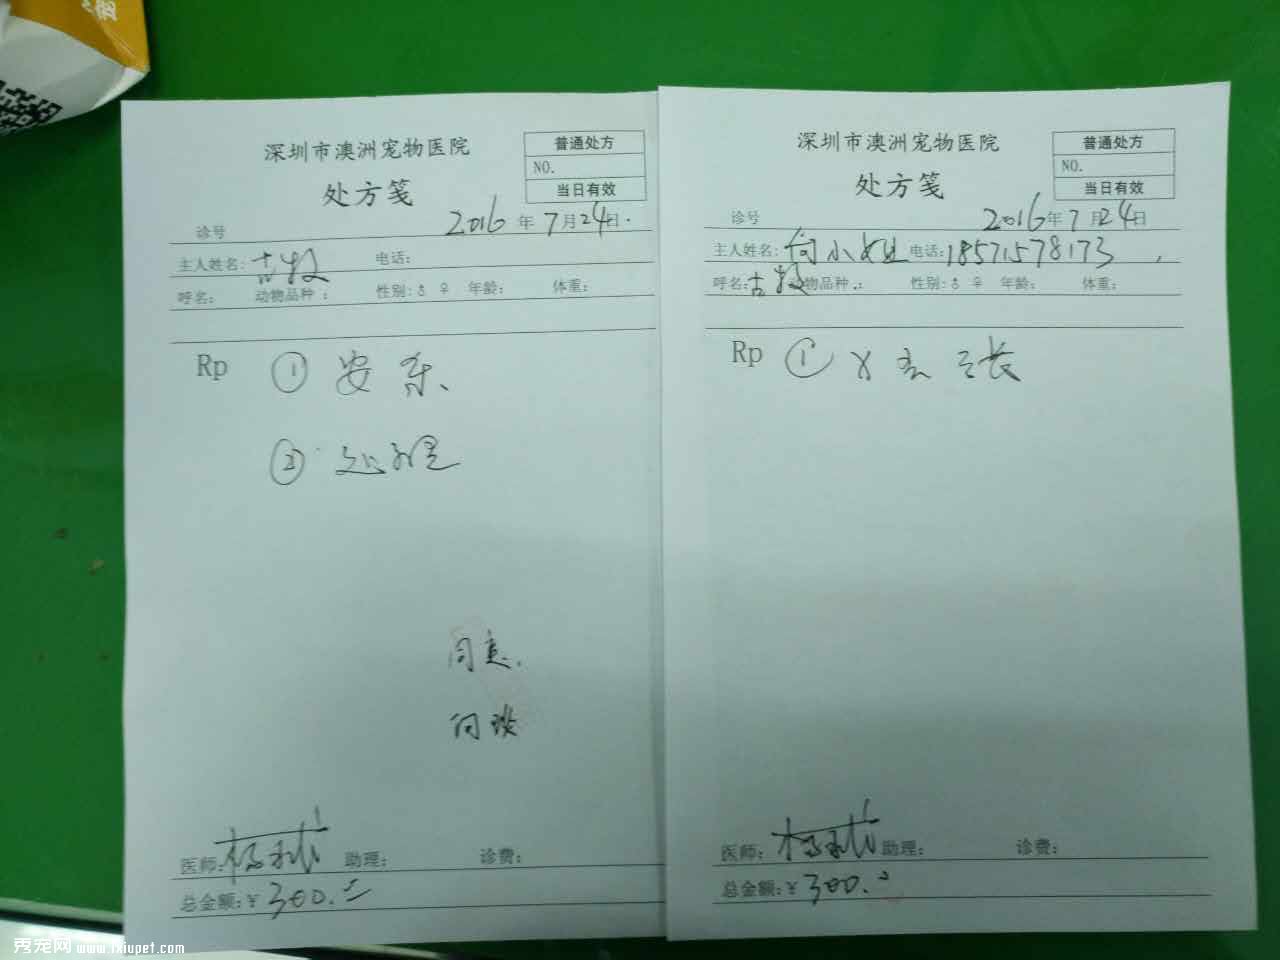 深圳市澳洲宠物医院
普通处方
NO.
当日有效
处方笺
诊号
2016年7月24日.
主人姓名:
电话:
呼名: 动物品种: 性别:♂ ♀ 年龄: 体重:
Rp ① 安乐
② 处理
同意.
向琰
医师: 助理: 诊费:
总金额:¥300.
深圳市澳洲宠物医院
普通处方
NO.
当日有效
处方笺
诊号
2016年7月24日
主人姓名:向小姐 电话:18571578173
呼名: 动物品种: 性别:♂ ♀ 年龄: 体重:
Rp ① X 三张
医师: 助理: 诊费:
总金额:¥300.
秀宠网 www.ixiupet.com